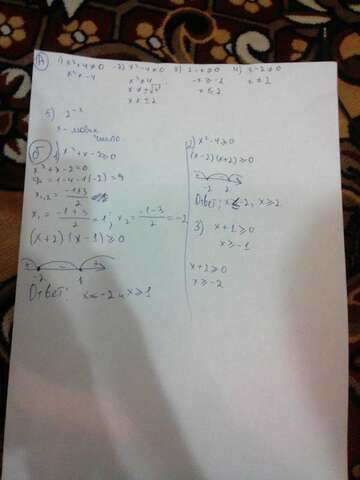 А 1) x²+4≠0 2) x²-4≠0 3) 2-x≥0 4) x-2≠0
x²≠-4 x²≠4 -x≥-2 x≠2
x≠±√4 x≤2
x≠±2
5) 2⁻ˣ
x- любое число.
Б 1) x²+x-2≥0
x²+x-2=0
=1-4·1·(-2)=9
x₁,₂= -1±3/2
x₁= -1+3/2 =1; x₂= -1-3/2 =-2
(x+2)(x-1)≥0
+ - +
-2 1
Ответ: x≤-2 и x≥1
2) x²-4≥0
(x-2)(x+2)≥0
-2 2
Ответ: x≤-2, x≥2
3) x+1≥0
x≥-1
x+2≥0
x≥-2